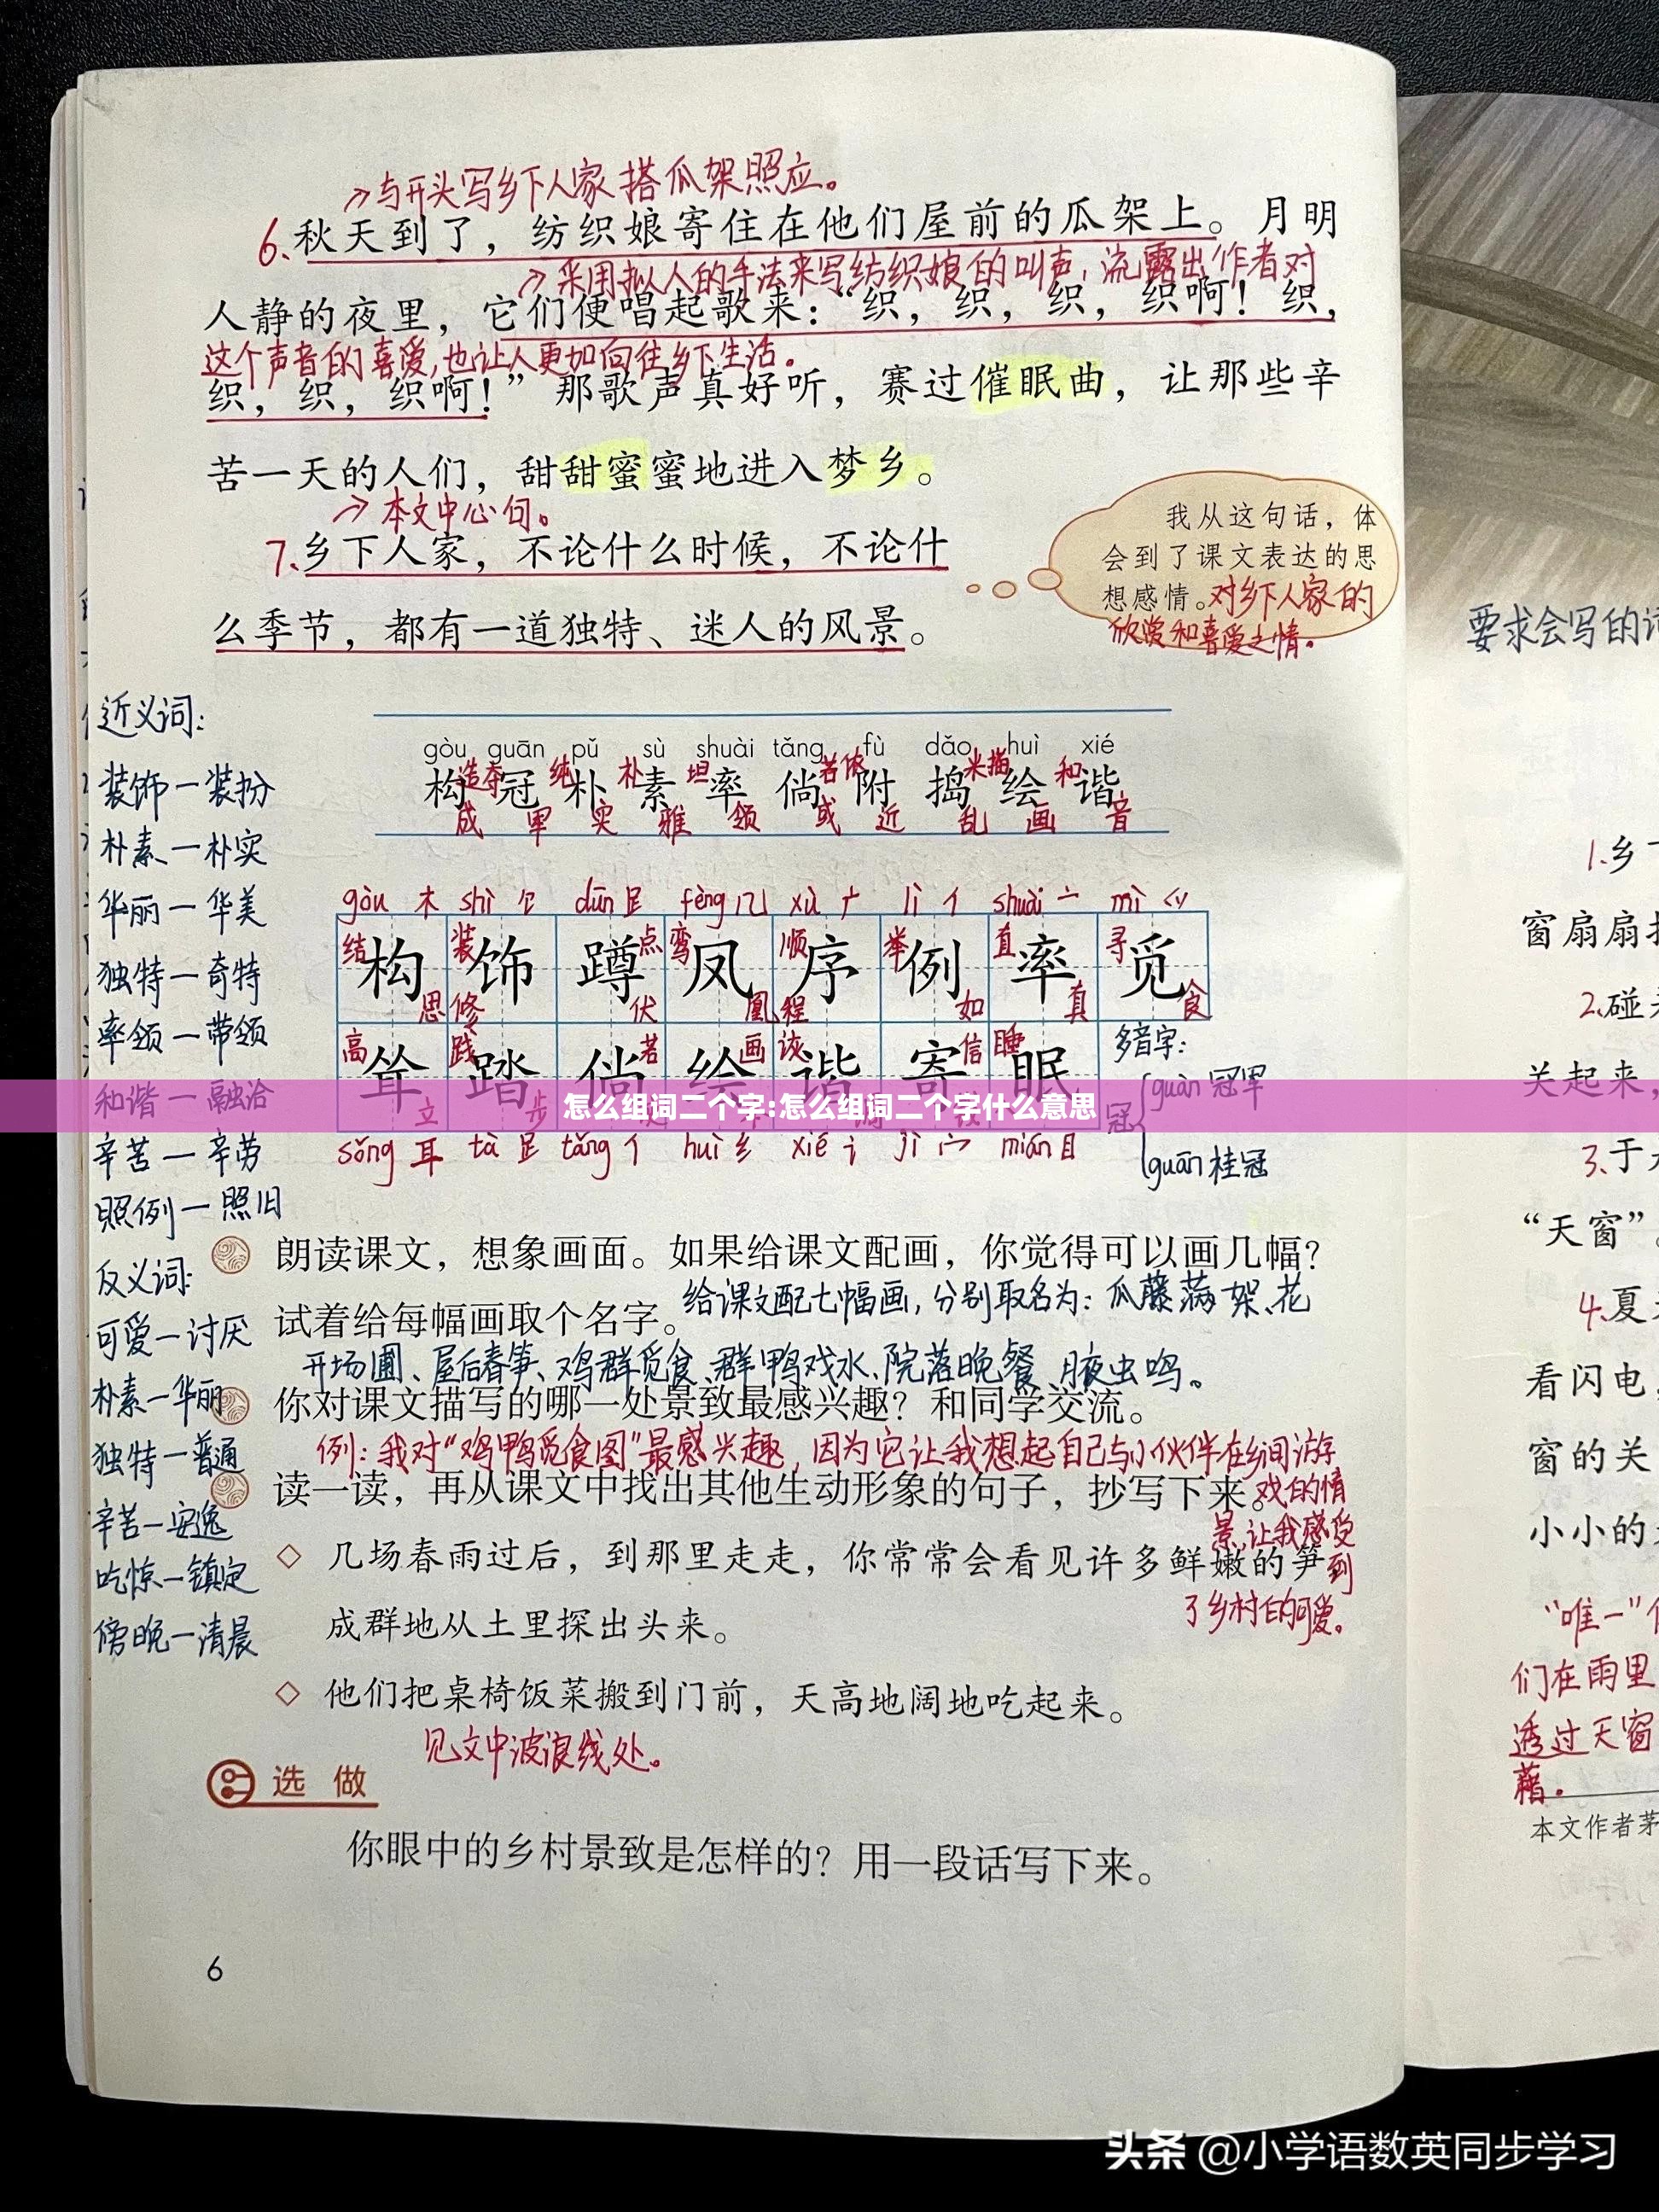 →与开头写乡下人家搭瓜架照应。
6.秋天到了，纺织娘寄住在他们屋前的瓜架上。月明
→采用拟人的手法来写纺织娘的叫声，流露出作者对
人静的夜里，它们便唱起歌来：“织，织，织，织啊！织，
这个声音的喜爱，也让人更加向往乡下生活。
织，织，织啊！”那歌声真好听，赛过催眠曲，让那些辛
苦一天的人们，甜甜蜜蜜地进入梦乡。
→本文中心句。
7.乡下人家，不论什么时候，不论什
么季节，都有一道独特、迷人的风景。
我从这句话，体
会到了课文表达的思
想感情。对乡下人家的
欣赏和喜爱之情。
近义词:
装饰—装扮
朴素—朴实
华丽—华美
独特—奇特
率领—带领
和谐—融洽
辛苦—辛劳
照例—照旧
反义词:
可爱—讨厌
朴素—华丽
独特—普通
辛苦—安逸
吃惊—镇定
傍晚—清晨
gòu guān pǔ sù shuài tǎng fù dǎo huì xié
造 夺 纯 朴 坦 若 依 米 描 和
构 冠 朴 素 率 倘 附 捣 绘 谐
成 军 实 雅 领 或 近 乱 画 音
gòu 木 shì 饣 dūn 𧾷 fèng 几 xù 广 lì 亻 shuài 亠 mì 爫
结 装 点 鸾 顺 举 直 寻
构 饰 蹲 凤 序 例 率 觅
思 修 伏 凰 程 如 真 食
高 践 若 画 诙 信 睡
耸 踏 倘 绘 谐 寄 眠
立 步
sǒng 耳 tà 𧾷 tǎng 亻 huì 纟 xié 讠 jì 宀 mián 目
多音字:
冠
guàn 冠军
guān 桂冠
怎么组词二个字:怎么组词二个字什么意思
朗读课文，想象画面。如果给课文配画，你觉得可以画几幅？
试着给每幅画取个名字。给课文配七幅画，分别取名为：瓜藤满架、花
开场圃、屋后春笋、鸡群觅食、群鸭戏水、院落晚餐、月夜虫鸣。
你对课文描写的哪一处景致最感兴趣？和同学交流。
例：我对“鸡鸭觅食图”最感兴趣，因为它让我想起自己与小伙伴在乡间游
读一读，再从课文中找出其他生动形象的句子，抄写下来。戏的情
景，让我感受
◇ 几场春雨过后，到那里走走，你常常会看见许多鲜嫩的笋到
了乡村的可爱。
成群地从土里探出头来。
◇ 他们把桌椅饭菜搬到门前，天高地阔地吃起来。
见文中波浪线处。
选做
你眼中的乡村景致是怎样的？用一段话写下来。
6
要求会写的
1.乡
窗扇扇
2.碰
关起来，
3.于
“天窗”。
4.夏
看闪电，
窗的关
小小的
“唯一”
们在雨里
透过天窗
藉。
本文作者茅
头条 @小学语数英同步学习